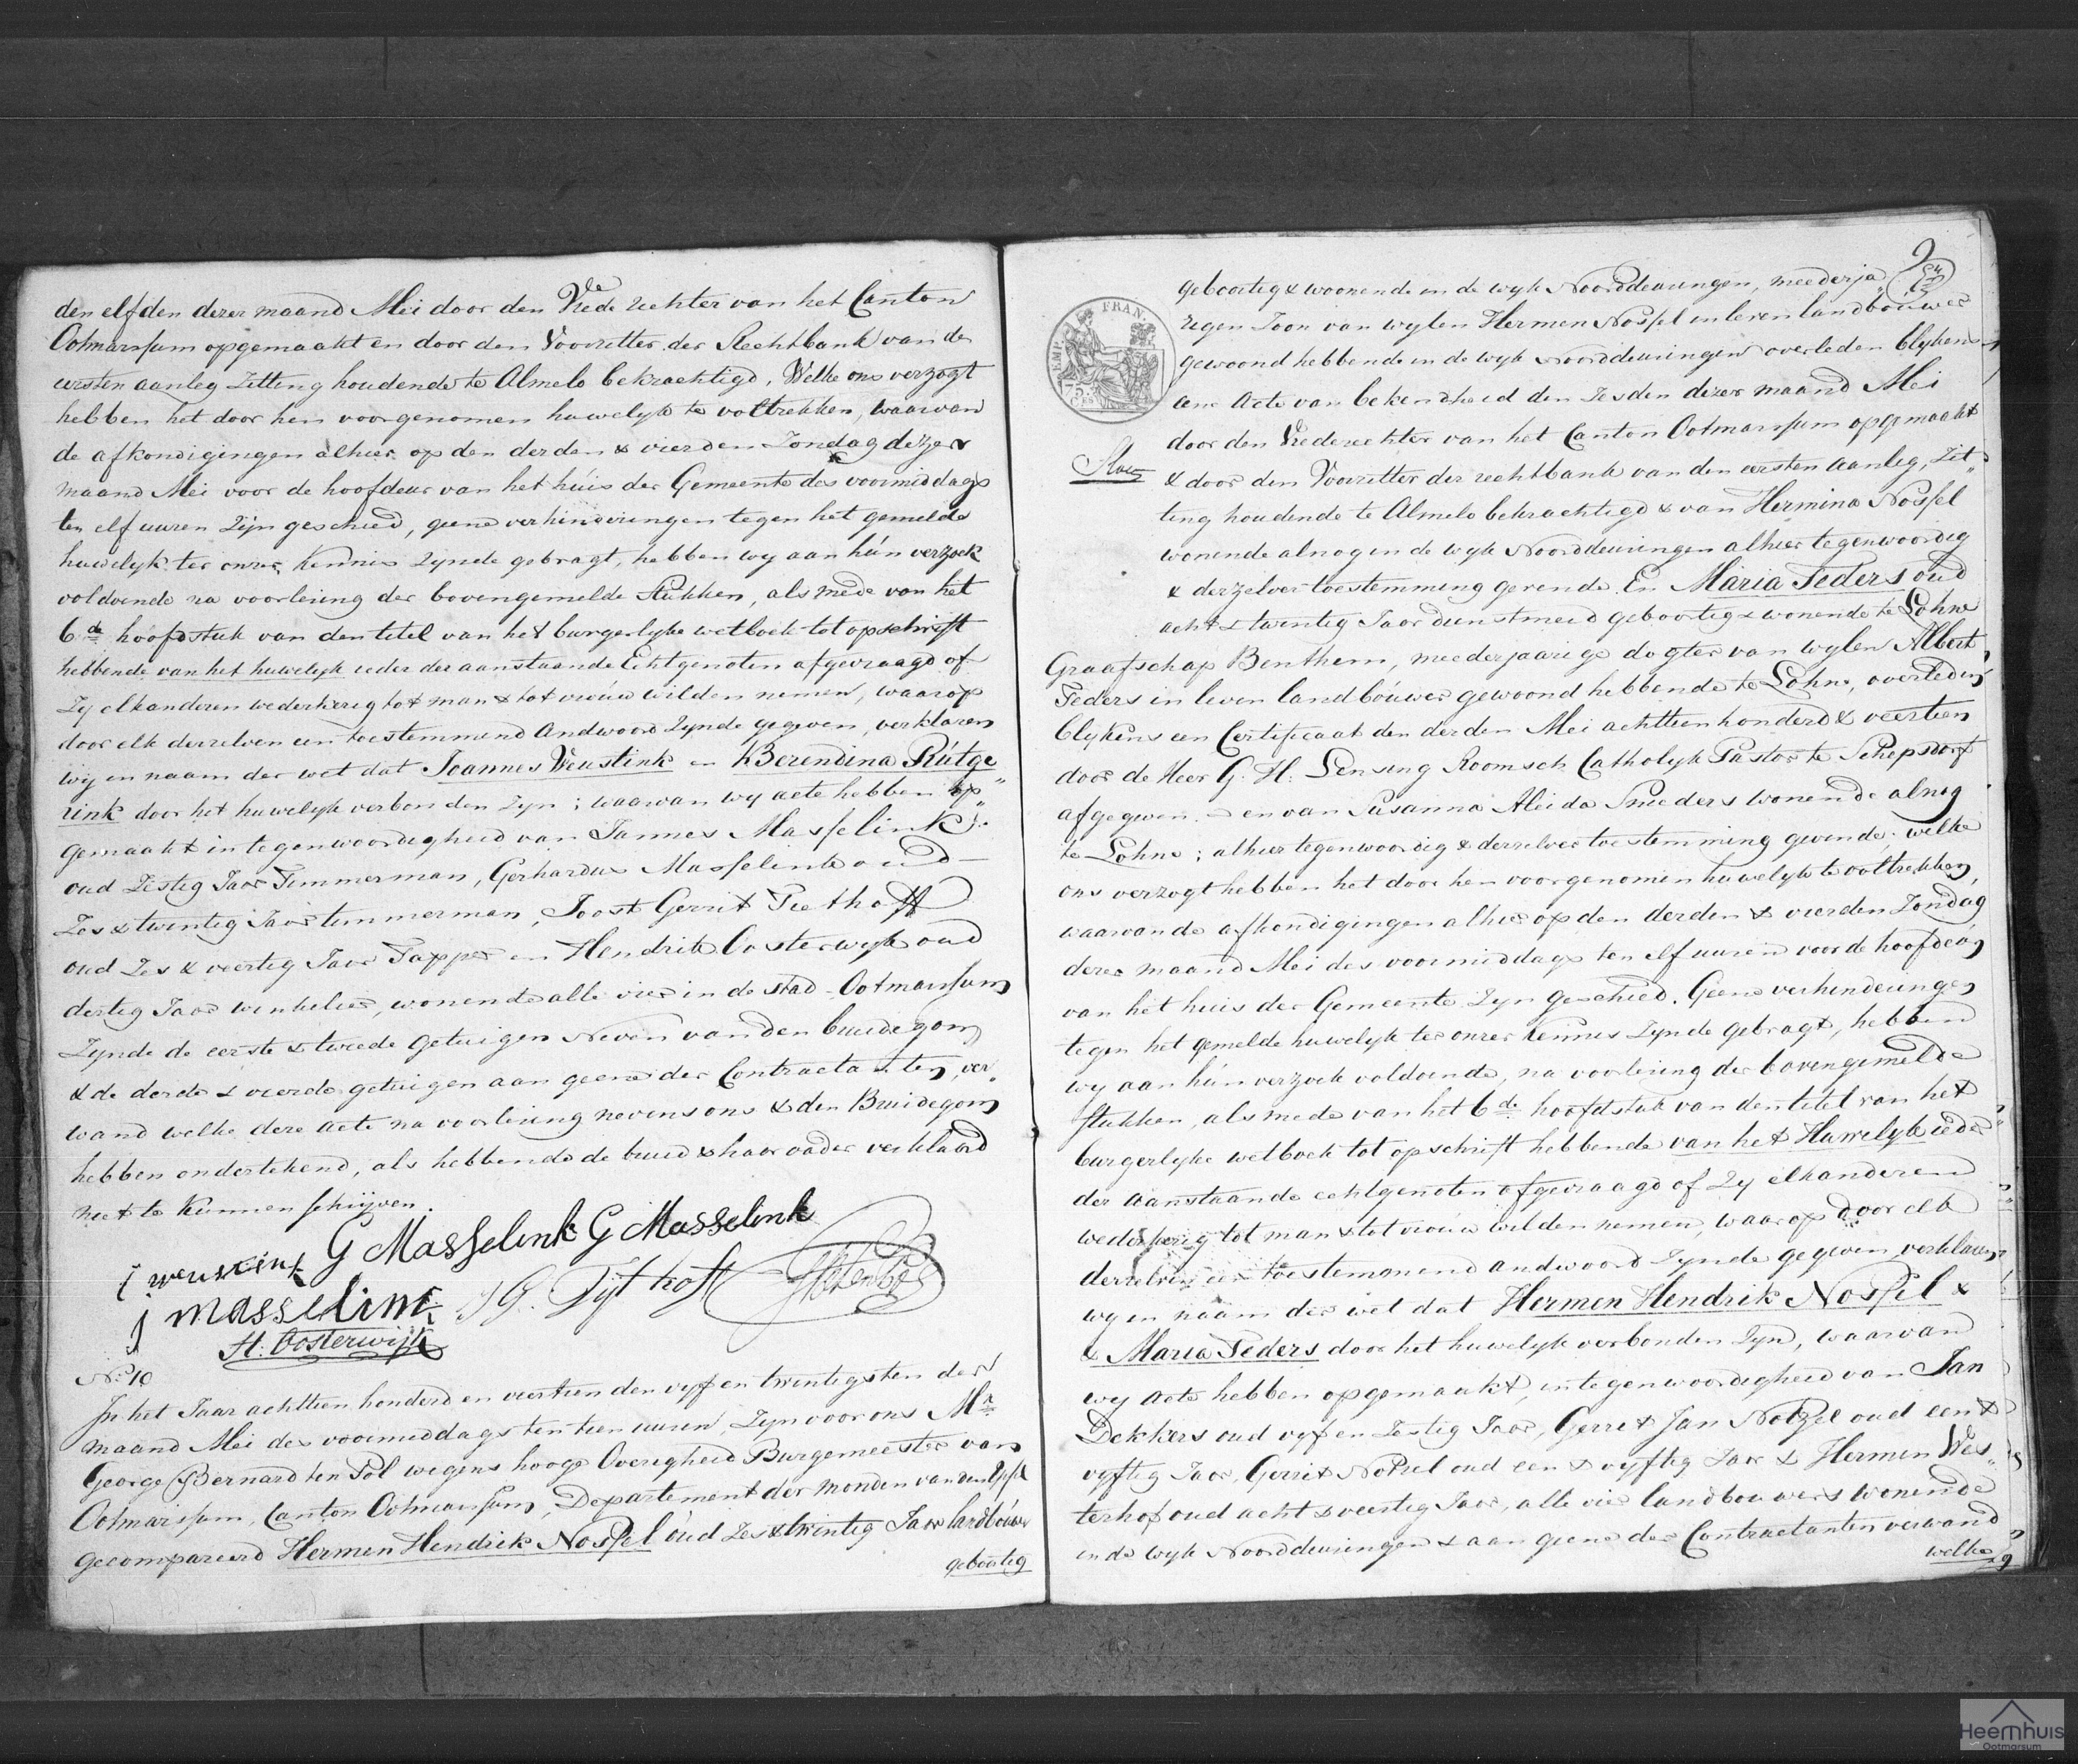 den elfden dezer maand Mei door den Vrede rechter van het Canton
Ootmarssum opgemaakt en door den Voorzitter der Rechtbank van de
eersten aanleg Zitting houdende te Almelo bekrachtigd, Welke ons verzogt
hebben het door hen voorgenomen huwelijk te voltrekken, waarvan
de afkondigingen alhier op den derden & vierden Zondag dezer
maand Mei voor de hoofdeur van het huis der Gemeente des voormiddags
ten elf uuren Zijn geschied, geene verhinderingen tegen het gemelde
huwelijk ter onzer Kennis Zynde gebragt, hebben wy aan hún verzoek
voldoende na voorlezing der bovengemelde Stukken, als mede van het
6de hoofdstuk van den titel van het burgerlyke wetboek tot opschrift
hebbende van het huwelyk ieder der aanstaande Echtgenoten afgevraagd of
Zy elkanderen wederkerig tot man & tot vrouw wilden nemen, waarop
door elk derzelven een toestemmend Andwoord Zynde gegeven, verklaren
wij in naam der wet dat Joannes Weustink en Berendina Rútge„
rink door het huwelyk verbonden Zyn; waarvan wy acte hebben op„
gemaakt in tegenwoordigheid van Jannes Masselink
oud Zestig Jaar Timmerman, Gerhardus Masselink oud
Zes & twintig Jaar timmerman, Joost Gerrit Tiethoff
oud Zes & veertig Jaar Tapper en Hendrik Oosterwyk oud
dertig Jaar winkelier, wonende alle vier in de stad Ootmarssum
Zynde de eerste & tweede getuigen Neven van den bruidegom
& de derde & vierde getuigen aan geene der Contractanten ver„
wand welke deze acte na voorlezing nevens ons & den Bruidegom
hebben ondertekend, als hebbende de bruid & haar vader verklaard
niet te Kunnen schrijven.
j weustink G Masselink G Masselink
j masselink J G. Tijthoff
H: Oosterwijk
No. 10
In het Jaar achttien honderd en veertien den vyf en twintigsten der
maand Mei des voormiddags ten tien uuren, Zyn voor ons Mr.
George Bernard ten Pol wegens hooge Overigheid Burgemeester van
Ootmarssum, Canton Ootmarssum, Departement der monden van den Yssel
gecompareerd Hermen Hendrik Nossel oud Zes & twintig Jaar landbouwer
geboortig
9
EMP. FRAN.
geboortig & woonende in de wyk Noorddeurningen, meederja„
rigen Zoon van wylen Hermen Nossel in leven landbouwer
gewoond hebbende in de wyk Noorddeurningen overleden blykens
eene Acte van bekendheid den Zesden dezer maand Mei
door den Vrederechter van het Canton Ootmarssum opgemaakt
& door den Voorzitter der rechtbank van den eersten Aanleg, Zit„
ting houdende te Almelo bekrachtigd & van Hermina Nossel
wonende alnog in de wyk Noorddeurningen alhier tegenwoordig
& derzelver toestemming gevende. En Maria Feders oud
acht & twintig Jaar dienstmeid geboortig & wonende te Lohne
Graafschap Benthem, meederjaarige dogter van wylen Albert
Feders in leven landbóuwer gewoond hebbende te Lohne, overleden
blykens een Certificaat den derden Mei achttien honderd & veertien
door de Heer G. H. Lensing Roomsch Catholyk Pastor te Schepsdorf
afgegeven. – en van Susanna Aleida Smeders wonende alnog
te Lohne; alhier tegenwoordig & derzelver toestemming gevende; welke
ons verzogt hebben het door hen voorgenomen huwelyk te voltrekken,
waarvan de afkondigingen alhier op den derden & vierden Zondag
dezer maand Mei des voormiddags ten elf uuren voor de hoofdeur
van het huis der Gemeente Zyn geschied. Geene verhinderingen
tegen het gemelde huwelyk ter onzer Kennis Zynde gebragt, hebben
wy aan hún verzoek voldoende, na voorlezing der bovengemelde
stukken, als mede van het 6de hoofdstuk van den titel van het
burgerlyke wetboek tot opschrift hebbende van het Huwelyk ieder
der Aanstaande echtgenoten afgevraagd of Zy elkanderen
wederkerig tot man & tot vrouw wilden nemen, waarop door elk
derzelven een toestemmend andwoord Zynde gegeven verklaren
wy in naam der wet dat Hermen Hendrik Nossel &
& Maria Feders door het huwelyk verbonden Zyn, waarvan
wy Acte hebben opgemaakt, in tegenwoordigheid van Jan
Dekkers oud vyf en Zestig Jaar, Gerrit Jan Notzel oud een &
vyftig Jaar, Gerrit Notzel oud een & vyftig Jaar & Hermen Wes„
terhof oud acht & veertig Jaar, alle vier landbouwers wonende
in de wyk Noorddeurningen & aan geene der Contractanten verwand
welke
Heemhuis
Ootmarsum